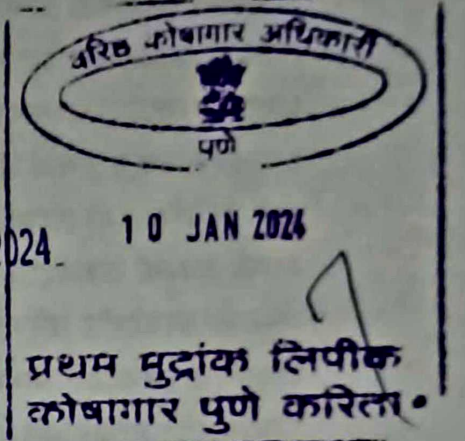 वरिष्ठ कोषागार अधिकारी
पुणे
10 JAN 2024
024
प्रथम मुद्रांक लिपीक
कोषागार पुणे करिता.